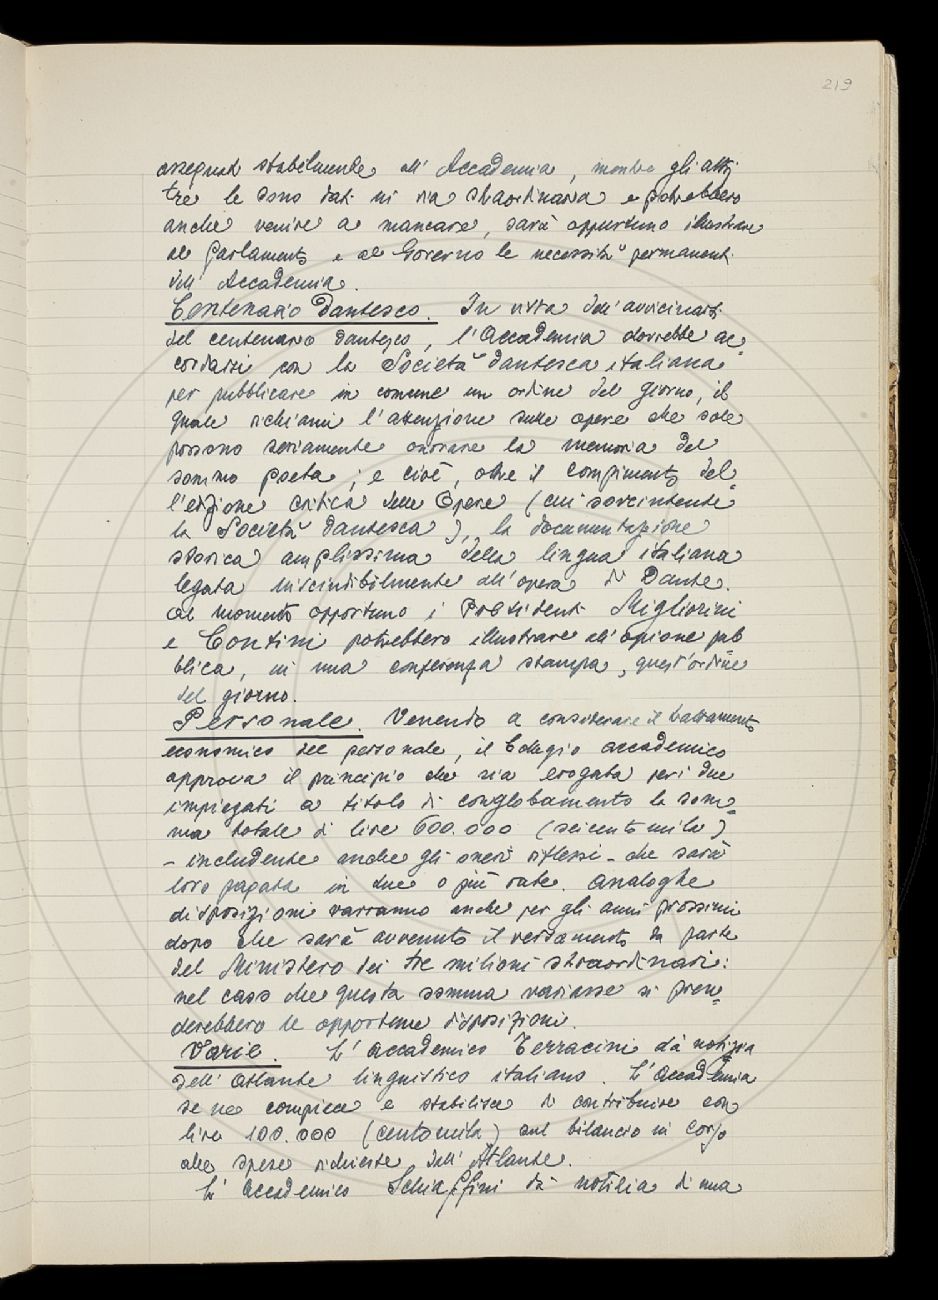 219
assegnati stabilmente all'Accademia, mentre gli altri
tre le sono dati in via straordinaria e potrebbero
anche venire a mancare, sarà opportuno illustrare
al Parlamento e al Governo le necessità permanenti
dell'Accademia.
Centenario Dantesco. In vista dell'avvicinarsi
del centenario dantesco, l'Accademia dovrebbe ac-
cordarsi con la Società dantesca italiana
per pubblicare in comune un ordine del giorno, il
quale richiami l'attenzione sulle opere che sole
possono seriamente onorare la memoria del
sommo poeta; e cioè, oltre il compimento del-
l'edizione critica delle Opere (cui sovrintende
la Società dantesca), la documentazione
storica amplissima della lingua italiana
legata inscindibilmente all'opera di Dante.
Al momento opportuno i Presidenti Migliorini
e Contini potrebbero illustrare all'opinione pub
blica, in una conferenza stampa, quest'ordine
del giorno.
Personale. Venendo a considerare il trattamento
economico del personale, il Collegio accademico
approva il principio che sia erogata per i due
impiegati a titolo di conglobamento la som-
ma totale di lire 600.000 (seicentomila)
- includente anche gli oneri riflessi - che sarà
loro pagata in due o più rate. Analoghe
disposizioni varranno anche per gli anni prossimi
dopo che sarà avvenuto il versamento da parte
del Ministero dei tre milioni straordinari:
nel caso che questa somma variasse si pren-
derebbero le opportune disposizioni.
Varie. L'accademico Terracini dà notizia
dell'Atlante linguistico italiano. L'Accademia
se ne compiace e stabilisce di contribuire con
lire 100.000 (centomila) sul bilancio in corso
alle spese richieste dall'Atlante.
L'accademico Schiaffini dà notizia di una